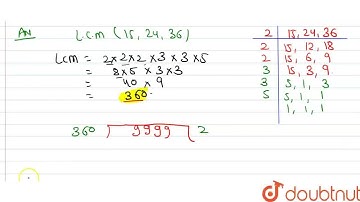 An
L.C.M (15, 24, 36)
LCM = 2×2×2 ×3 ×3 ×5
= 8×5 ×3×3
= 40 × 9
= 360.
2 | 15, 24, 36
2 | 15, 12, 18
2 | 15, 6, 9
3 | 15, 3, 9
3 | 5, 1, 3
5 | 5, 1, 1
1, 1, 1
360 9999 2
doubtnut